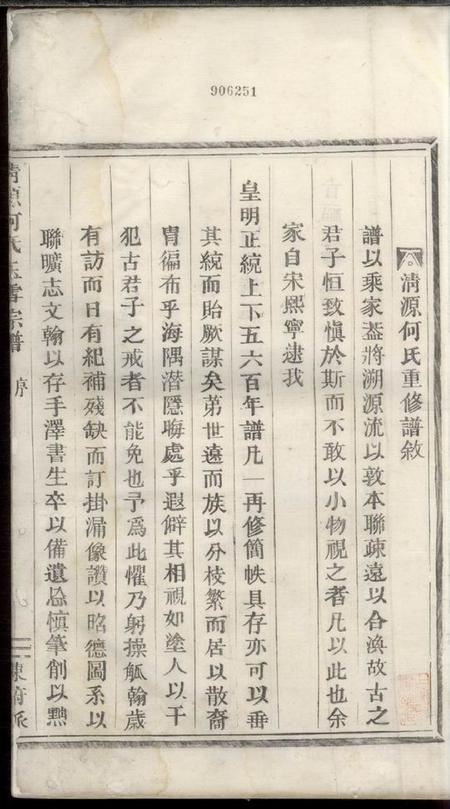 906251
清源何氏重修譜敘
譜以乘家葢將溯源流以敦本聯疎遠以合渙故古之
君子恒致慎於斯而不敢以小物視之者凡以此也余
家自宋熙寧逮我
皇明正統上下五六百年譜凡一再修簡帙具存亦可以垂
其統而貽厥謀矣第世遠而族以分枝繁而居以散裔
冑徧布乎海隅潛隱晦處乎遐僻其相視如塗人以干
犯古君子之戒者不能免也予爲此懼乃躬操觚翰歲
有訪而日有紀補殘缺而訂掛漏像讚以昭德圖系以
聯曠志文翰以存手澤書生卒以備遺忘慎筆削以黜
清源何氏 宗譜
序
東府派